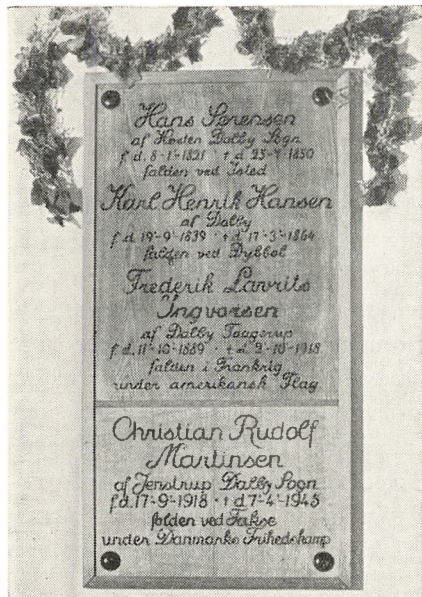 Hans Sørensen
af Hosten Dalby Sogn
f d. 8-1-1821 · † d. 25-7-1850
falden ved Isted
Karl Henrik Hansen
af Dalby
f d. 19-9-1839 · † d 17-3-1864
falden ved Dybbøl
Frederik Lavrits
Ingvorsen
af Dalby Taagerup
f d. 11-10-1889 · † d 2-10-1918
falden i Frankrig
under amerikansk Flag
Christian Rudolf
Martinsen
af Jenstrup Dalby Sogn
f d. 17-9-1918 · † d 7-4-1945
falden ved Fakse
under Danmarks Frihedskamp